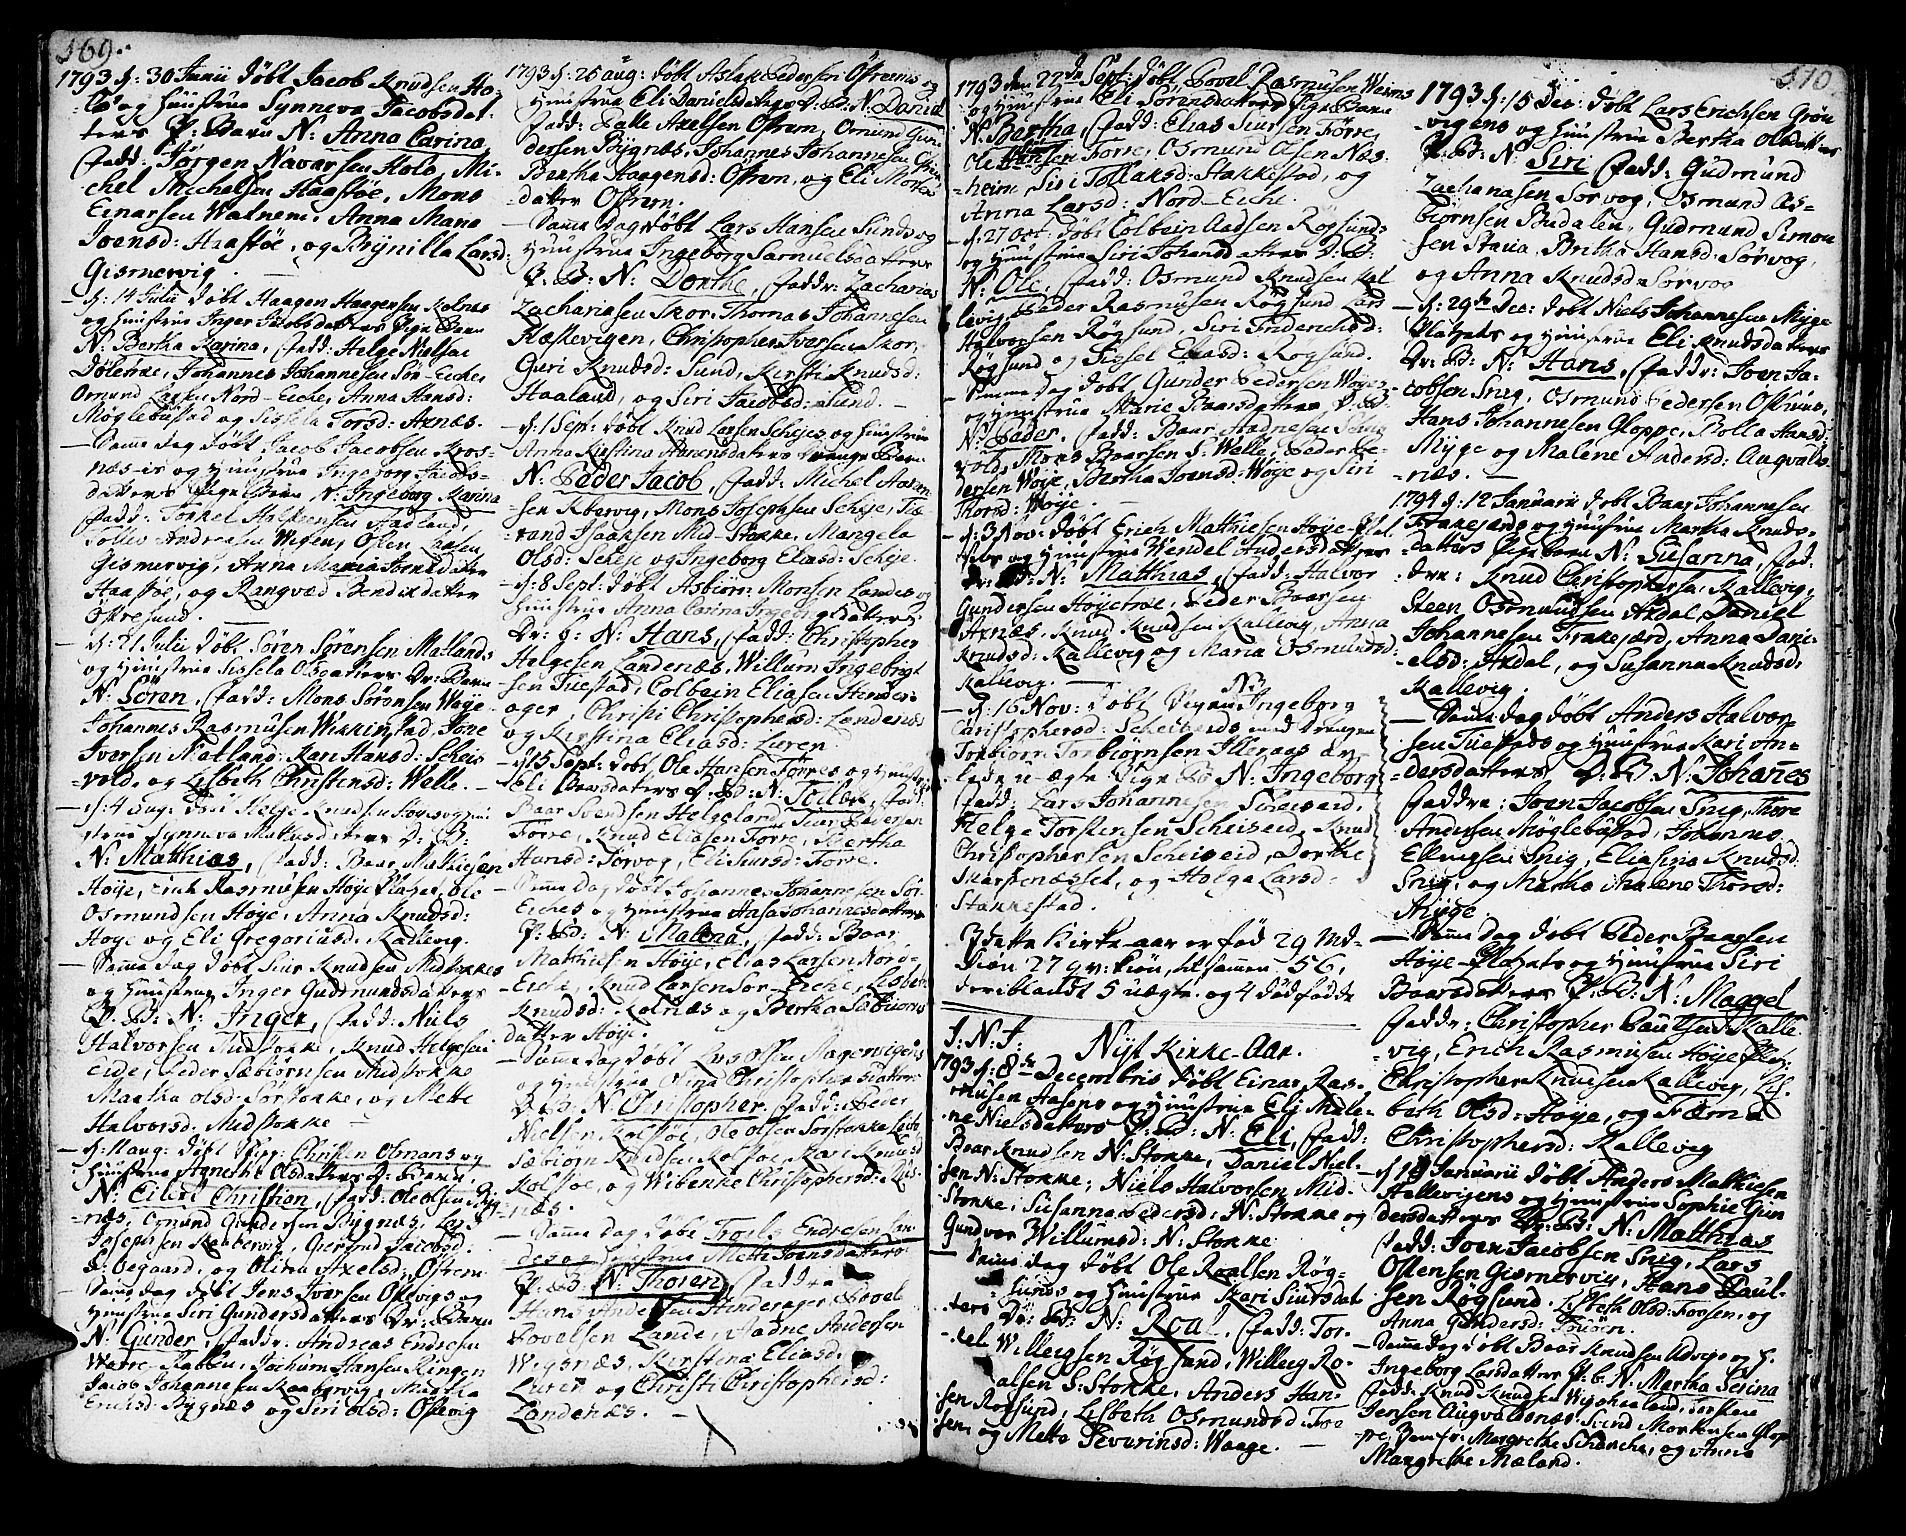 369.
1793 d: 30 Junii døbt Jacob Knudsen Ho-
les og Hustrue Synneva Jacobsdat-
ters P: Barn N: Anna Carina,
fadd: Jørgen Navarsen Hole, Mi-
chel Michelsen Haastøe, Mons
Einarsen Watnem, Anna Maria
Joensd: Haastøe, og Brynilla Larsd:
Gismervig.
- d: 14 Julii døbt Haagen Haagensen Kolnes
og Hustrue Inger Jacobsdatters Pige Barn
N: Bertha Karina, fadd: Helge Nielsen
Johannes Johannesen Sør-Eicke,
Osmund Larsen Nord-Eicke, Anna Hansd:
Møglebustad og Sissela Torsd: Axnæs.
- Samme dag døbt Jacob Jacobsen Kros-
næs og Hustrue Ingeborg Jacobs-
datters Pige Barn N: Ingeborg Karina
fadd: Torkel Aadland,
Tollev Andreasen Osten Larsen
Gismervig, Anna Maria
Haastøe, og Rangved Bendixdatter
Økresund.
- d: 21 Julii døbt Søren Sørensen Matlands
og Hustrue Sissela Olsdatters Dr: Barn
N: Søren, fadd: Mons Sørensen Woje
Johannes Rasmusen Wikkinstad, Tore
Iversen Matland, Kari Hansd: Scheis-
vold, og Lisbeth Christensd: Welle.
- d: 4 Aug: døbt Helge Knudsen Høyes og Hu-
strue Synneva D: B:
N: Matthias, fadd: Baar Mathiesen
Høye, Erich Rasmusen Høye Platzet, Ole
Osmundsen Høye, Anna Knudsd:
Høye og Eli Gregoriusd: Kallevig.
- Samme dag døbt Siur Knudsen Midstokkes
og Hustrue Inger Gudmundsdatters
P: B: N: Inger, fadd: Niels
Halvorsen Midstokke, Knud Helgesen
Eide, Peder Sæbiørnsen Midstokke
Martha Olsd: Sørstokke, og Mette
Halvorsd: Midstokke
- d: 11 Aug: døbt Christen Osmans og
Hustrue Agnethe Olsdatters D: Barn,
N: Eilert Christian, fadd: Ole Olsen Byg-
næs, Osmund Gundersen Bygnæs, Lars
Josephsen Gertrud Jacobsd:
og Olina Axelsd: Ostrem
Samme dag døbt Jens Iversen Ostevigs og
Hustrue Siri Gundersdatters Dr: Barn
N: Gunder, fadd: Andreas Endresen
Jochum Hansen Ringen
Jacob Johannesen Martha
Bygnæs og Siri Olsd: Ostevig
1793 d: 25 Aug: døbt Aslak Pedersen Ostrems og
Hustrue Eli Danielsd D: B: N: Daniel
fadd: Palle Axelsen Ostrem, Osmund Gun-
dersen Bygnæs, Johannes Johannesen
Bertha Haagensd: Ostrem, og Eli Morten
datter Ostrem.
- Samme dag døbt Lars Hansen Sunds og
Hustrue Ingeborg Samuelsdatters
P: B: N: Dorthe, fadd: Zacharias
Zachariasen Skor, Thomas Johannesen
Hæskevigen, Christopher Iversen Skor,
Guri Knudsd: Sund, Kirsti Knudsd:
Haaland, og Siri Jacobsd: Sund.-
- d: 1 Sept: døbt Knud Larsen Schejes og Hustrue
Anna Kirstina Aarensdatters Drenge Barn
N: Peder Jacob, fadd: Michel Aaran-
sen Mons Josephsen Scheje, Tie-
rand Isaaksen Mid-Stokke, Mangela
Olsd: Scheje og Ingeborg Eliasd: Scheje
- d: 8 Sept: døbt Asbiørn Monsen Landes og
Hustrue Anna Carina Ingebrigtsdatters
Dr: B: N: Hans, fadd: Christopher
Helgesen Landenæs, Willum Ingebrigt-
sen Tuestad, Colbein Eliasen Hinder-
ager, Christi Christophersd: Landenæs
og Kirstina Eliasd: Luren.
- d: 15 Sept: døbt Ole Hansen Førres og Hustrue
Eli D: B: N: fadd:
Baar Svendsen Helgeland, Siur Pedersen
Førre, Knud Eliasen Førre, Bertha
Hansd: Sørvog, Eli Siursd: Førre.
Samme dag døbt Johannes Johannesen Sør
Eickes og Hustrue Aasa Johannesdatters
P: B: N: Malena, fadd: Baar
Mathiesen Høye, Elias Larsen Nord-
Eicke, Knud Larsen Sør-Eicke, Lisbet
Knudsd: Kolnæs og Bertha Sæbiorns-
datter Høye.
- Samme dag døbt Lars Olsen Stagenvigens
og Hustrue Olina Christophersdatters
D: B: N: Christopher, fadd: Peder
Nielsen Kolstøe, Ole Olsen Sørstokke
Sæbiørn Knudsen Kolstøe, Kari Knudsd
Kolstøe, og Wibenke Christophersd:
næs.
- Samme dag døbt Troels Endresen Lan-
des og Hustrue Mette Joensdatters
P: B: N: Thoren, faddre
Hans Hinderager, Povel
Povelsen Lande, Aadne Andersen
Wigsnæs, Kirstina Eliasd:
Luren og Christi Christophersd:
Landenæs.
370.
1793 den 22de Sept: døbt Povel Rasmusen Weims
og Hustrue Eli Sørensdatters Pige Barn
N: Bertha, fadd: Elias Siursen Førre,
Ole Hansen Førre, Osmund Olsen Næs-
heim, Siri Tollaksd: Stakkestad, og
Anna Larsd: Nord-Eicke.
- d: 27 Oct: døbt Colbein Aadsen Røgsunds
og Hustrue Siri Johansdatters D: B:
N: Ole, fadd: Osmund Knudsen Kal
levig, Peder Rasmusen Røgsund, Lars
Halvorsen Røgsund, Siri
Røgsund og Sigsel Eliasd: Røgsund.
- Samme dag døbt Gunder Pedersen Wojes
og Hustrue Marie Baarsdatters D: B:
N: Peder, fadd: Baar Aadnesen
vold, Mons Baarsen S: Welle, Peder Pe-
dersen Woje, Bertha Joensd: Woje og Siri
Thorsd: Woje.
- d: 3 Nov: døbt Erich Mathiesen Høye-Plat
zets og Hustrue Wendel Andersdatters
Dr: B: N: Matthias, fadd: Halvor
Gundersen Høyetvæ, Peder Baarsen
Axnæs, Knud Knudsen Kallevig, Anna
Knudsd: Kallevig og Maria Osmundsd
Kallevig.
NB
- d: 16 Nov: døbt Pigen Ingeborg
Christophersd: Scheiseids med Drengen
Torbiørn Torbiørnsen Illeraas an-
leden u-ægte Pige B: N: Ingeborg
fadd: Lars Johannesen Scheiseid,
Helge Torstensen Scheiseid, Knud
Christophersen Scheiseid, Dorthe
Skarpenæsset, og Helga Larsd:
Stakkestad.
I dette Kirke-aar er fød 29 Md-
kiøn 27 qv: kiøn, tilsammen 56,
deriblandt 5 uægte og 4 dødfødde
I. N. J: Nyt Kirke-Aar.
1793 d: 8de Decembris døbt Einar Ras-
musen Hagens og Hustrue Eli Male-
ne Nielsdatters P: B: N: Eli, fadd:
Baar Knudsen N: Stokke, Daniel Niel-
sen N: Stokke, Niels Halvorsen Mid-
Stokke, Susanna Pedersd: N: Stokke og
Gunvor Willumsd: N: Stokke
- Samme dag døbt Ole Roalsen Røg-
sunds og Hustrue Kari Siursdat
ters Dr: B: N: Roal, fadd: Tor-
kel Willeigsen Røgsund, Willeig Ro-
alsen S: Stokke, Anders Han-
sen Røgsund, Lisbeth Osmundsd: Føre
sen, og Mette Severinsd: Waage.
1793 d: 15 Dec: døbt Lars Erichsen Grøn-
vigens og Hustrue Bertha Olsdatters
P: B: N: Siri fadd: Gudmund
Zachariasen Sørvog, Osmund As-
biørnsen Budalen, Gudmund Simon
sen Stavia, Britha Hansd: Sørvog,
og Anna Knudsd: Sørvog
- d: 29de Dec: døbt Niels Johannesen Myge
Platzets og Hustrue Eli Knudsdatters
Dr: B: N: Hans, fadd: Joen Ja-
cobsen Snig, Osmund Pedersen Ostrims,
Hans Johannesen Gloppe, Bolla Hansd:
Myge og Malene Andersd: Augvalds-
næs.
1794 d: 12 Januarii døbt Baar Johannesen
Frakesjærds og Hustrue Martha Knuds-
datters Pige Barn N: Susanna, fad-
dre: Knud Christophersen Kallevig,
Steen Osmundsen Axdal, Daniel
Johannesen Frakesjærd, Anna Dani-
elsd: Axdal, og Susanna Knudsd:
Kallevig.
- Samme dag døbt Anders Halvor-
sen Tuestads og Hustrue Kari An-
dersdatters D: B N: Johannes
faddre: Joen Jacobsen Snig, Thore
Andersen Møglebusted, Johannes
Ellingsen Snig, Eliasina Knudsd:
Snig, og Martha Malene Thorsd:
Myge.
- Samme dag døbt Peder Baarsen
Høye-Platzets og Hustrue Siri
Baarsdatters P: B: N: Maggel
faddr: Christopher Poulsen Kalle-
vig, Erich Rasmusen Høye Platz:
Christopher Knudsen Kallevig, Lis-
beth Olsd: Høye, og Taarna
Christophersd: Kallevig
- d: 19 Januarii døbt Anders Mathiesen
Hallevigens og Hustrue Sophie Gun
dersdatters Dr: B: N: Matthias
fadd: Joen Jacobsen Snig, Lars
Ostensen Gismervig, Hans Paul-
sen Røgsund, Lisbeth Olsd: Fossen, og
Anna Gundersd: Tuøen.
- Samme dag døbt Baar Knudsen Udviges og H.
Ingeborg Larsdatters P: B: N: Martha Serina
fadd: Knud Knudsen Torsten
Jensen Augvaldsnæs, Siurd Mortensen Glop
pe, Jomfr: Margrethe Schanche, og Anna
Margrethe Mæland.